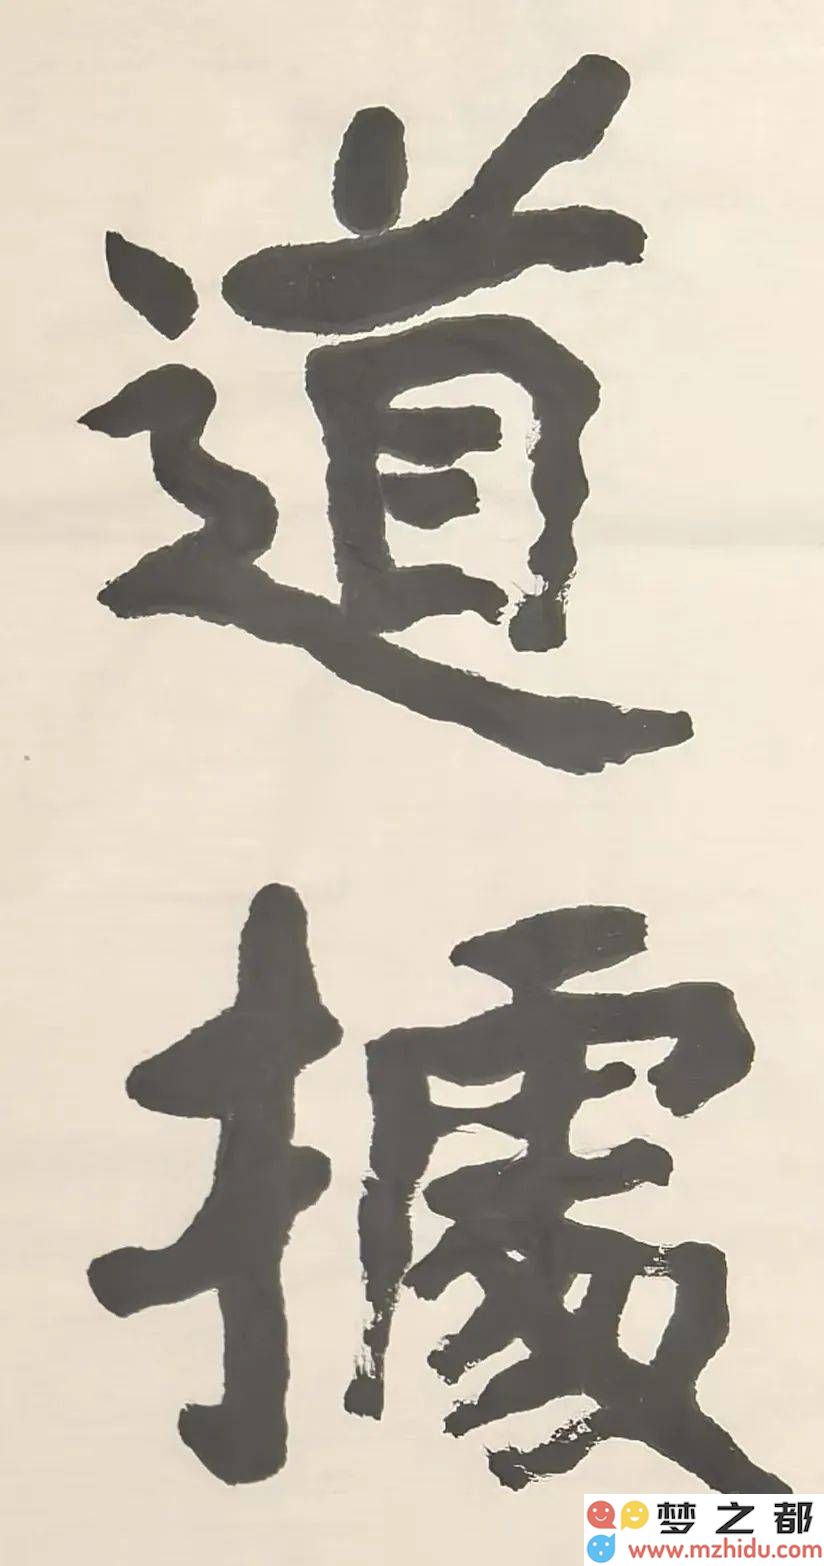 道
據
梦之都
www.mzhidu.com